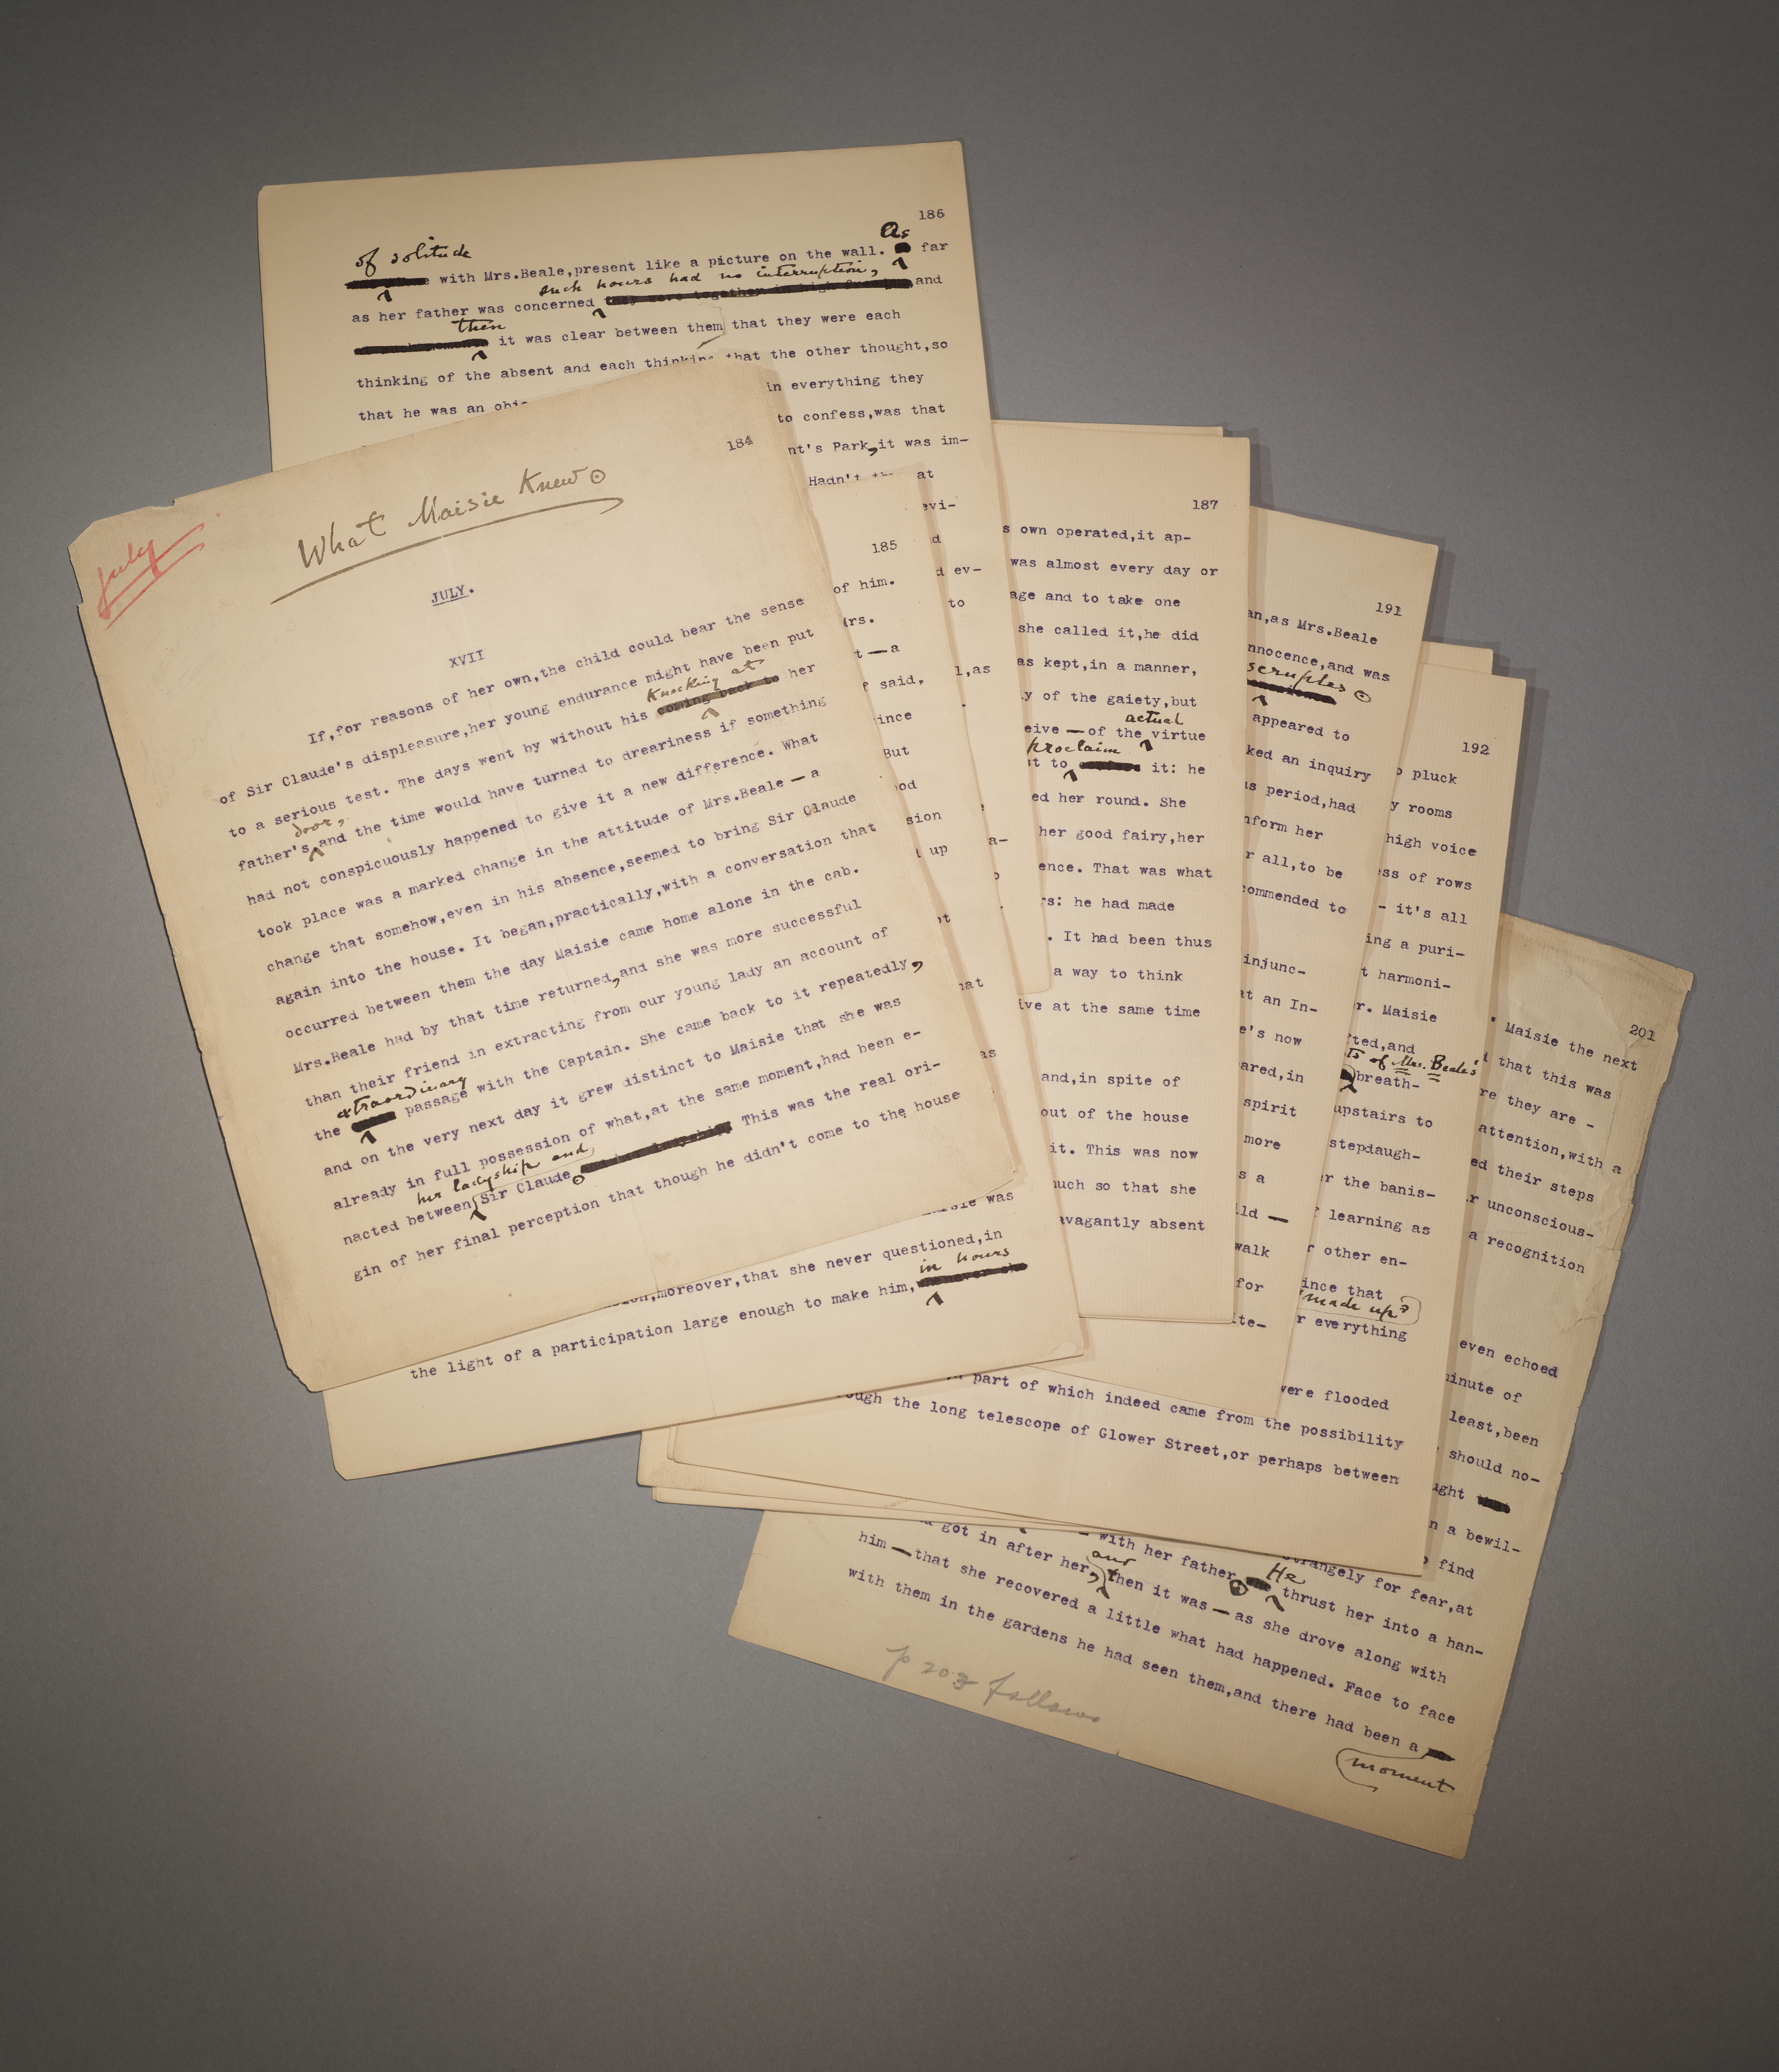 July
What Maisie Knew
184
JULY.
XVII
If,for reasons of her own,the child could bear the sense
of Sir Claude's displeasure,her young endurance might have been put
knocking at
to a serious test. The days went by without his coming back to her
door,
father's and the time would have turned to dreariness if something
had not conspicuously happened to give it a new difference. What
took place was a marked change in the attitude of Mrs.Beale — a
change that somehow,even in his absence,seemed to bring Sir Claude
again into the house. It began,practically,with a conversation that
occurred between them the day Maisie came home alone in the cab.
Mrs.Beale had by that time returned,and she was more successful
than their friend in extracting from our young lady an account of
extraordinary
the passage with the Captain. She came back to it repeatedly,
and on the very next day it grew distinct to Maisie that she was
already in full possession of what,at the same moment,had been e-
her ladyship and
nacted between Sir Claude. This was the real ori-
gin of her final perception that though he didn't come to the house
185
of him.
rs.
t — a
said,
ince
But
od
sion
up
moreover,that she never questioned,in
in hours
the light of a participation large enough to make him, whenever she
186
of solitude
As
with Mrs.Beale,present like a picture on the wall. far
such hours had no interruption,
as her father was concerned they were together in high and
then
at such moments it was clear between them that they were each
thinking of the absent and each thinking that the other thought,so
that he was an
in everything they
to confess,was that
nt's Park,it was im-
Hadn't at
evi-
d ev-
to
l,as
187
s own operated,it ap-
was almost every day or
age and to take one
she called it,he did
as kept,in a manner,
y of the gaiety,but
actual
eive — of the virtue
proclaim
st to it: he
ed her round. She
her good fairy,her
ence. That was what
rs: he had made
. It had been thus
a way to think
ive at the same time
and,in spite of
out of the house
it. This was now
much so that she
avagantly absent
191
an,as Mrs.Beale
nnocence,and was
scruples
appeared to
ked an inquiry
s period,had
nform her
r all,to be
commended to
injunc-
at an In-
e's now
ared,in
spirit
more
s a
ld —
walk
for
ite-
192
o pluck
y rooms
high voice
ss of rows
- it's all
ing a puri-
t harmoni-
r. Maisie
fted,and
ts of Mrs. Beale's
breath-
upstairs to
stepdaugh-
r the banis-
f learning as
r other en-
ince that
made up?
r everything
were flooded
part of which indeed came from the possibility
ough the long telescope of Glower Street,or perhaps between
201
. Maisie the next
that this was
re they are -
attention,with a
ed their steps
r unconscious-
a recognition
even echoed
minute of
least,been
should no-
ught that
n a bewil-
find
strangely for fear,at
He
with her father thrust her into a han-
and
got in after her, then it was — as she drove along with
him — that she recovered a little what had happened. Face to face
with them in the gardens he had seen them,and there had been a
moment
p 203 follows